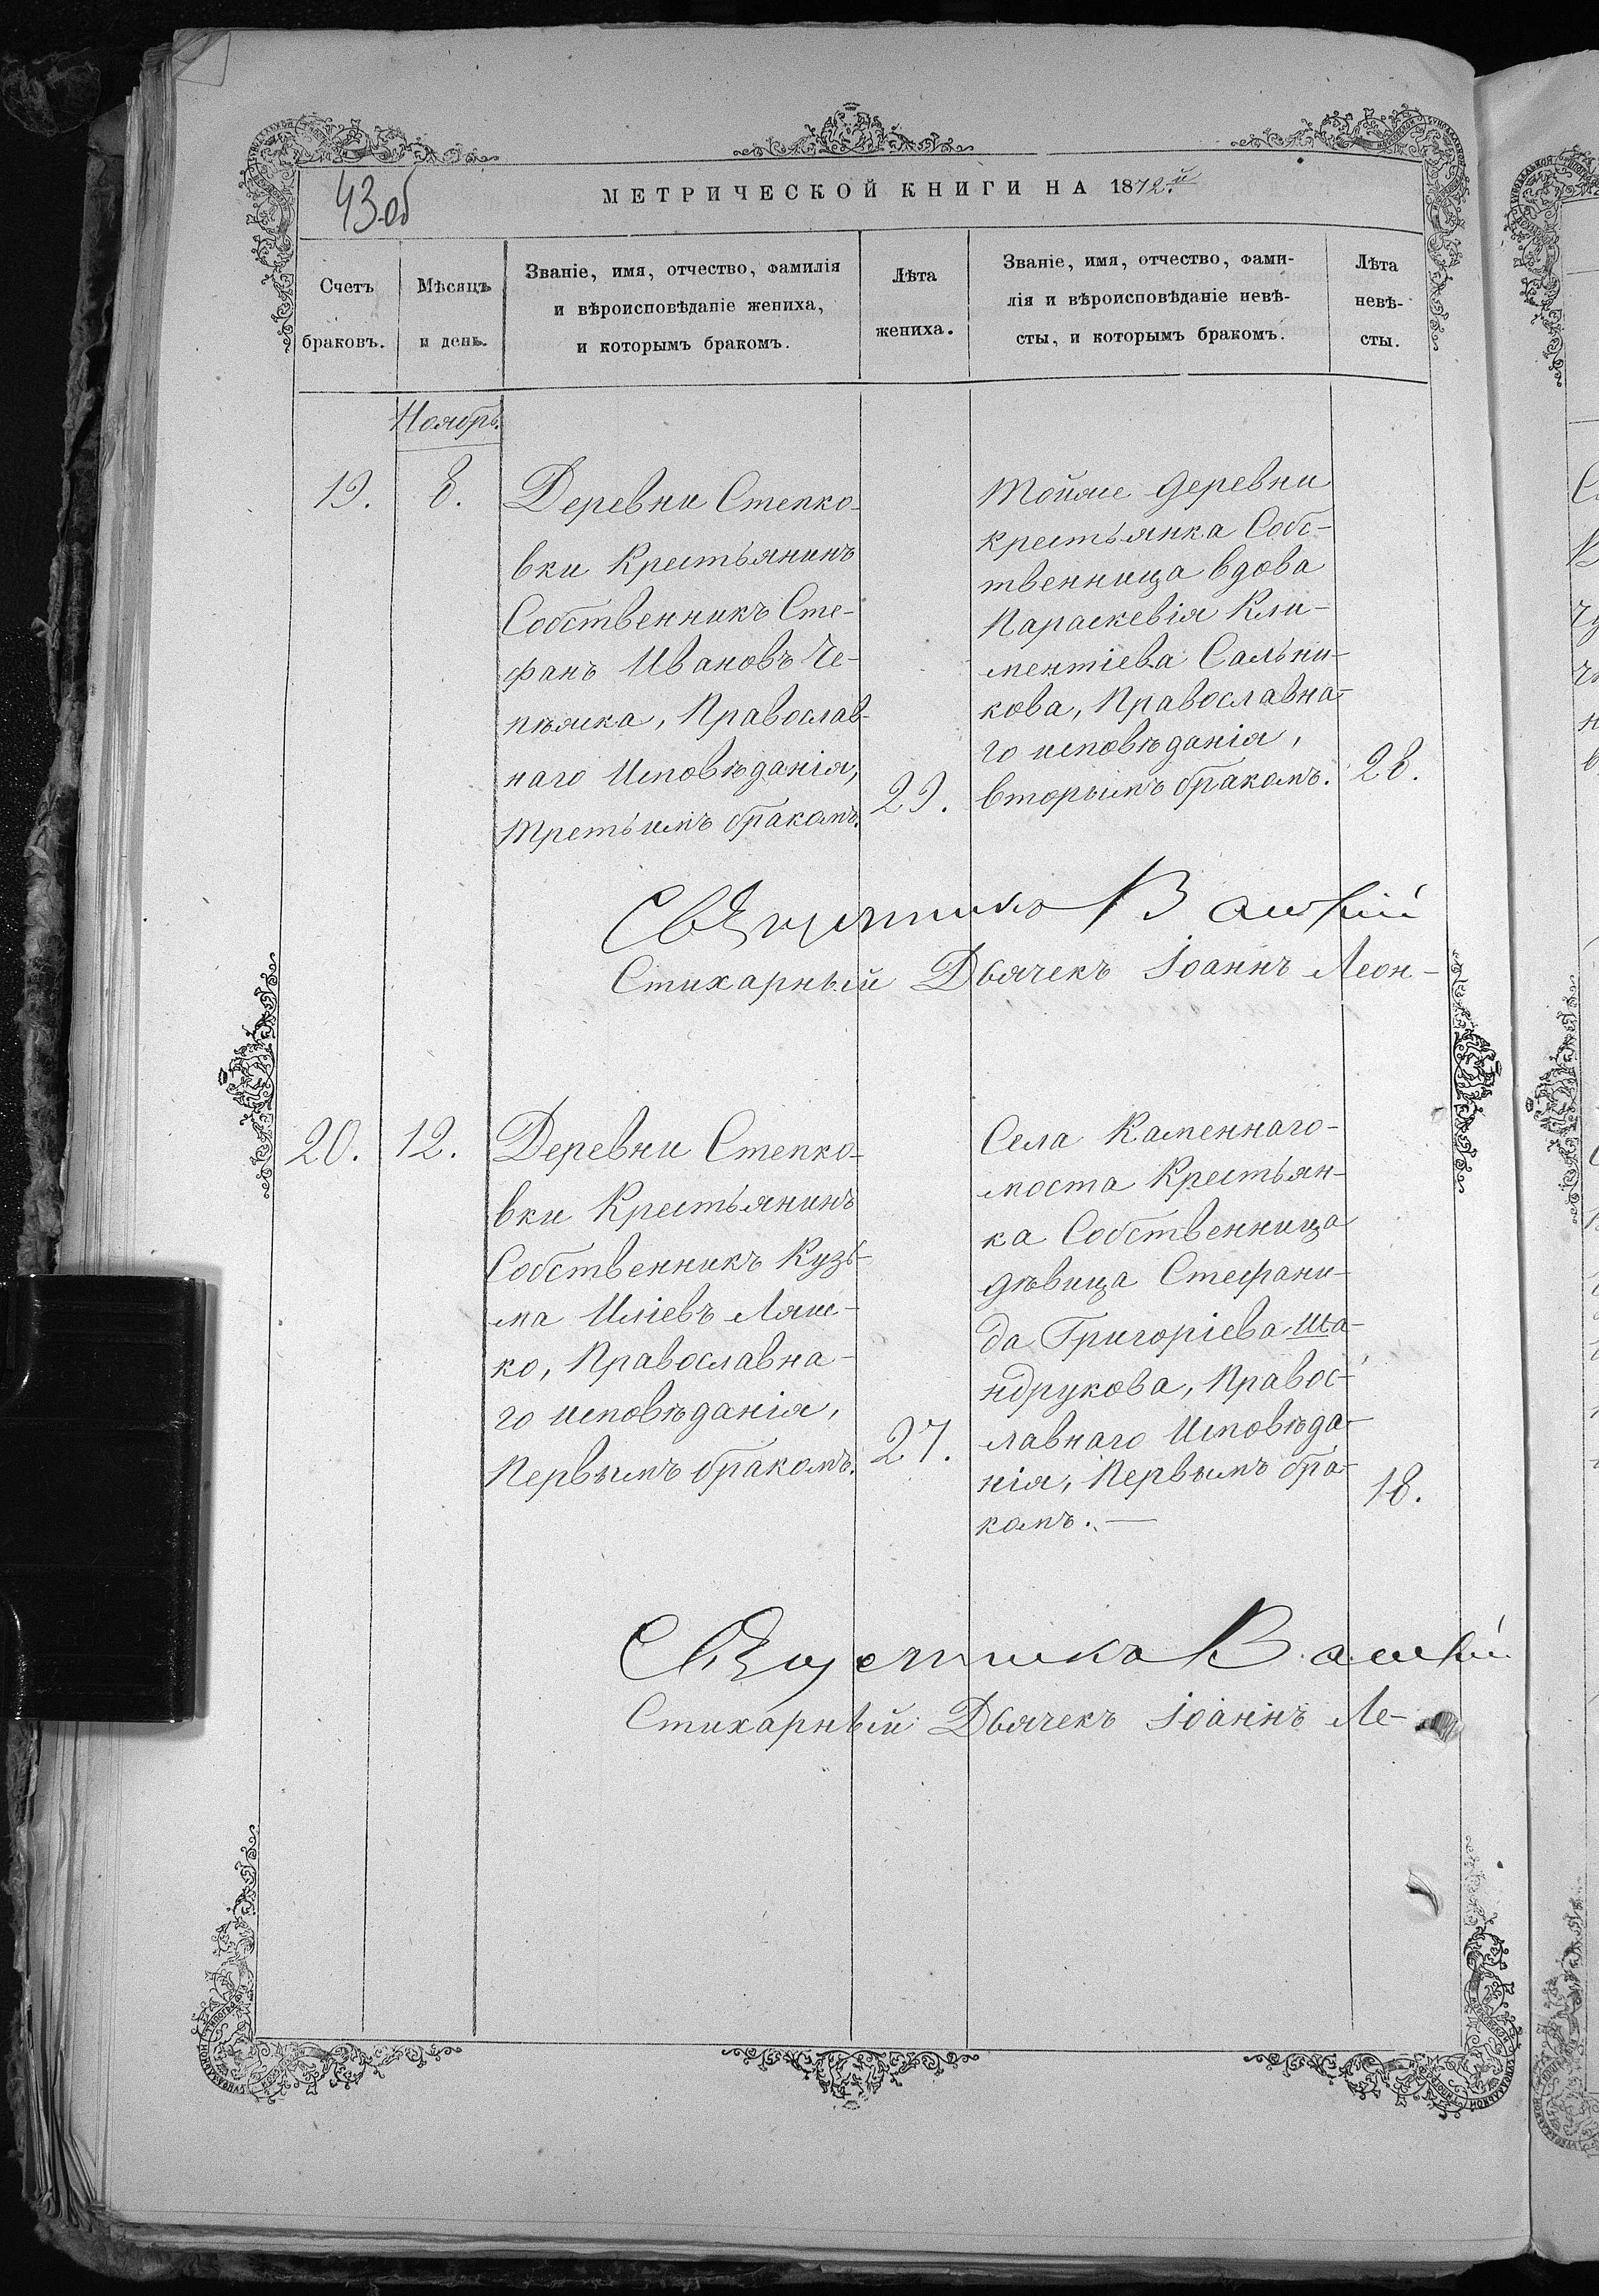 МЕТРИЧЕСКОЙ КНИГИ НА 1872.й
43об
Счетъ браковъ.
Мѣсяцъ и день.
Званіе, имя, отчество, фамилія
и вѣроисповѣданіе жениха,
и которымъ бракомъ.
Лѣта
жениха.
Званіе, имя, отчество, фами-
лія и вѣроисповѣданіе невѣ-
сты, и которымъ бракомъ.
Лѣта
невѣ-
сты.
Ноябрь.
19.
8.
Деревни Степко-
вки Крестьянинъ
Собственникъ Сте-
фанъ Ивановъ Че-
пѣлка, Православ-
наго Исповѣданія,
Третьимъ бракомъ.
29.
Тойже деревни
крестьянка Собс-
твенница вдова
Параскевія Кли-
ментіева Сальни-
кова, Православна-
го исповѣданія,
вторымъ бракомъ.
28.
Священникъ В
Стихарный Дьячекъ Іоаннъ Леон-
20.
12.
Деревни Степко-
вки Крестьянинъ
Собственникъ Кузь-
ма Иліевъ Ляш-
ко, Православна-
го исповѣданія,
Первымъ бракомъ.
27.
Села Каменнаго-
моста Крестьян-
ка Собственница
дѣвица Стефани-
да Григоріева Ша-
ндрукова, Правос-
лавнаго Исповѣда-
нія, Первымъ бра-
комъ. —
18.
Священникъ В
Стихарный Дьячекъ Іоаннъ Ле-